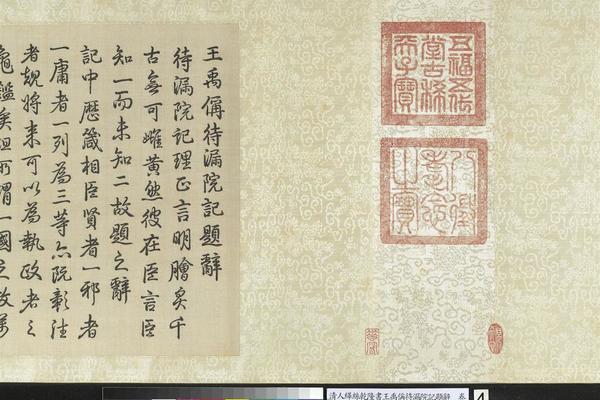 五福五代
堂古稀
天子寶
八徵
耄念
之寶
王禹偁待漏院記題辭
待漏院記理正言明膾炙千
古無可雌黃然彼在臣言臣
知一而未知二故題之辭
記中歷箴相臣賢者一邪者
一庸者一列為三等亦既彰往
者覬將來可以為執政者之
龜鑑矣但所謂一國之政萬
清人緙絲乾隆書王禹偁待漏院記題辭 卷
4